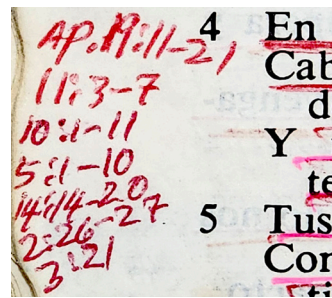 Ap. 19:11-21
11:3-7
10:1-11
5:1-10
14:14-20
2:26-27
3:21
4 En
Cab
d
Y
te
5 Tus
Con